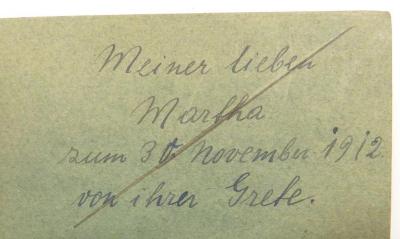 Meiner lieben
Martha
zum 30. November 1912
von ihrer Grete.